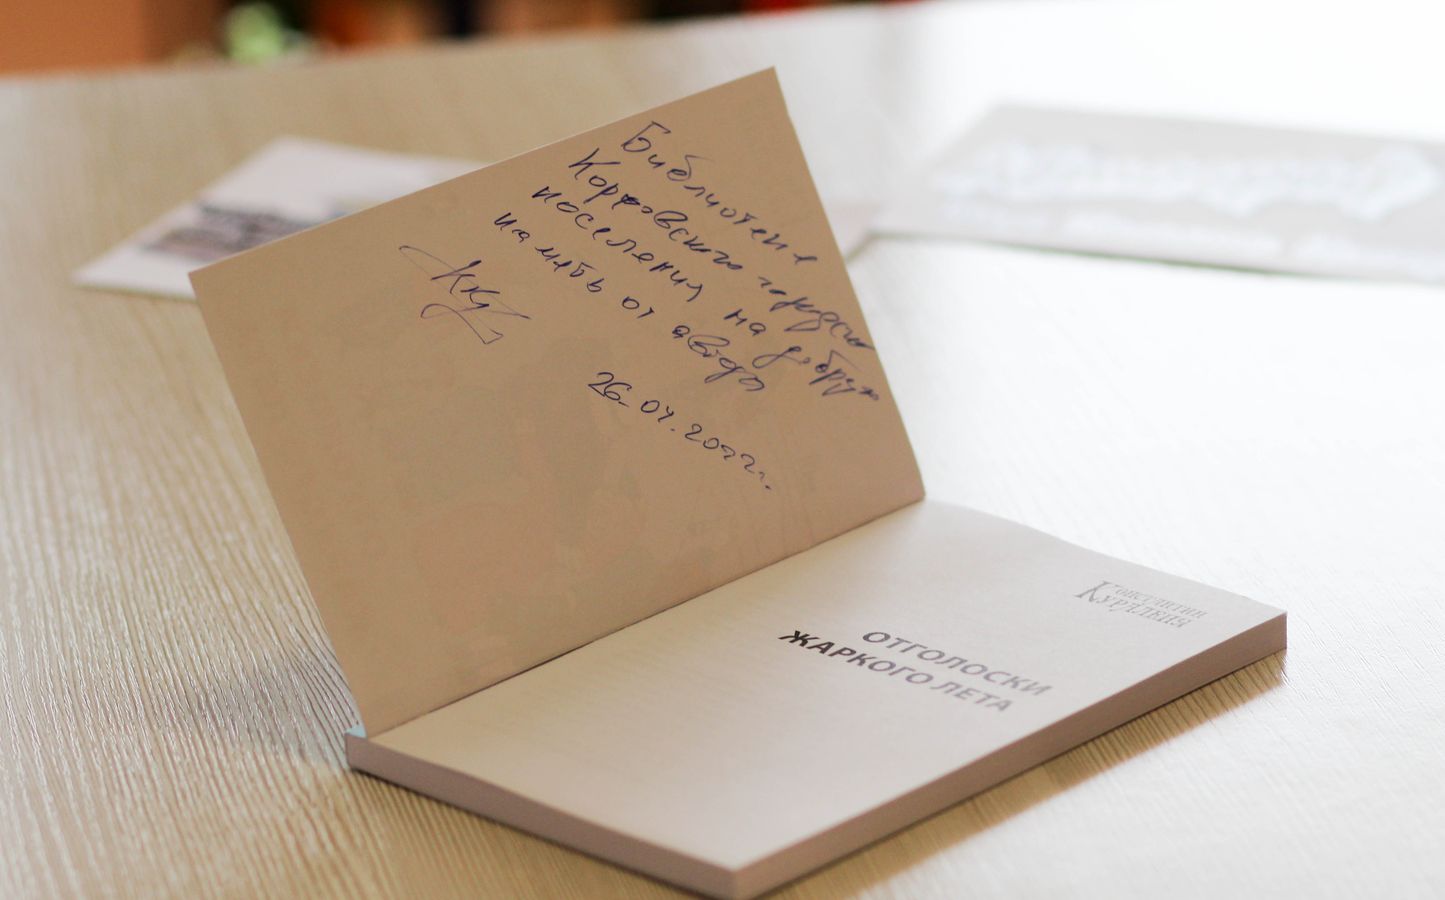 Библиотеке
Корфовского городского
поселения на добрую
память от автора
26.04.2022г.
Константин
Кураленя
ОТГОЛОСКИ
ЖАРКОГО ЛЕТА